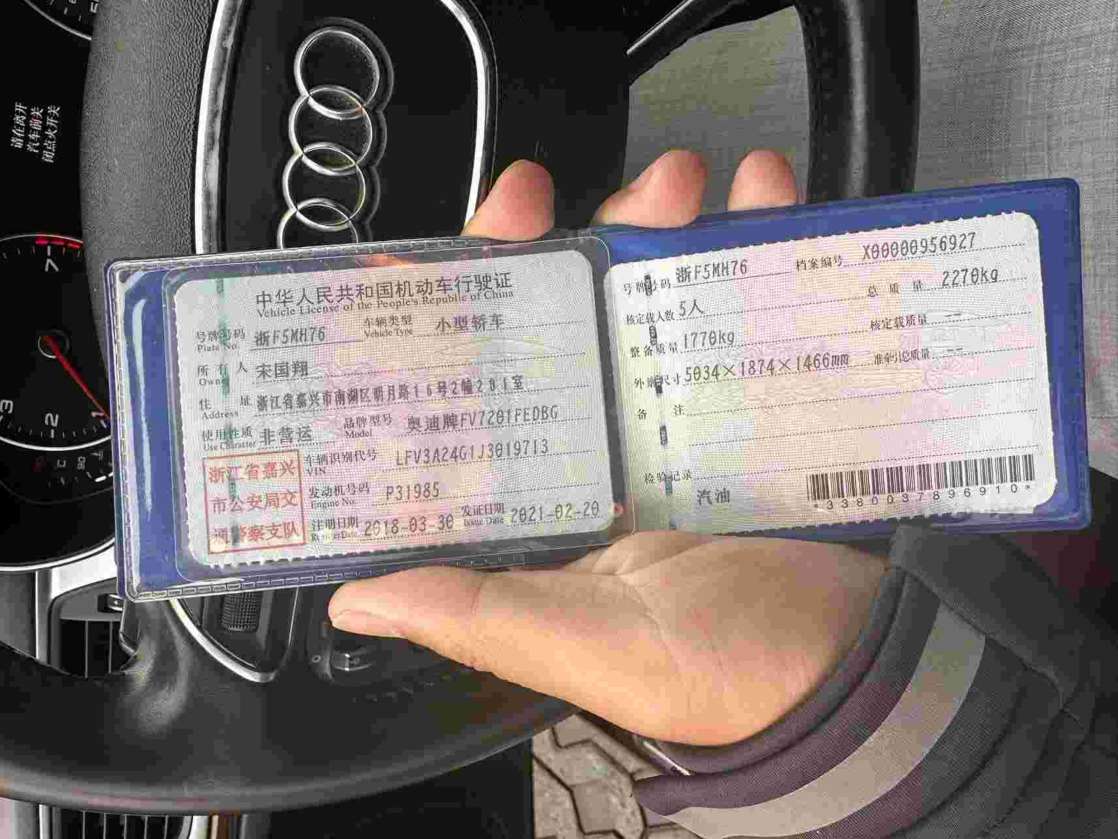 请在离开
汽车前关
闭点火开关
7
3
1
中华人民共和国机动车行驶证
Vehicle License of the People's Republic of China
号牌号码 浙F5MH76 车辆类型 小型轿车
Plate No. Vehicle Type
所有人 宋国翔
Owner
住址 浙江省嘉兴市南湖区明月路16号2幢201室
Address
使用性质 非营运 品牌型号 奥迪牌FV7201FEDBG
Use Character Model
浙江省嘉兴
市公安局交
通警察支队
车辆识别代号 LFV3A24G1J3019713
VIN
发动机号码 P31985
Engine No.
注册日期 2018-03-30 发证日期 2021-02-20
Register Date Issue Date
号牌号码 浙F5MH76 档案编号 X00000956927
核定载人数 5人 总质量 2270kg
整备质量 1770kg 核定载质量 --
外廓尺寸 5034×1874×1466mm 准牵引总质量 --
备注
检验记录
汽油
*3380037896910*